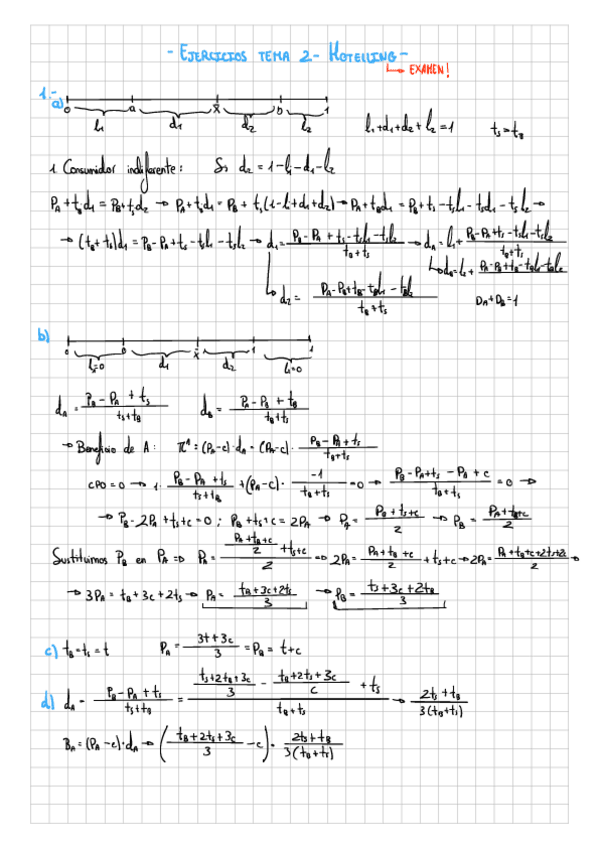 - EJERCICIOS TEMA 2 - HOTELLING -
↳ EXAMEN!
1.-
a)
0 a x̂ b 1
l₁ d₁ d₂ l₂
l₁+d₁+d₂+l₂=1 ts=tB
1 Consumidor indiferente: Si d₂ = 1-l₁-d₁-l₂
→ (tB+ts)d₁ = PB-PA+ts-tsl₁-tsl₂ → d₁= (PB-PA+ts-tsl₁-tsl₂)/(tB+ts) → dA= l₁+ (PB-PA+ts-tsl₁-tsl₂)/(tB+ts)
DA+DB=1
b)
l₁=0 d₁ d₂ l₂=0
dA= (PB-PA+ts)/(ts+tB) dB= (PA-PB+tB)/(tB+ts)
→ Beneficio de A: πᴬ=(PA-c)·dA = (PA-c)· (PB-PA+ts)/(tB+ts)
CPO=0 → 1· (PB-PA+ts)/(ts+tB) +(PA-c)· (-1)/(tB+ts) =0 → (PB-PA+ts-PA+c)/(tB+ts) =0 →
→ PB-2PA+ts+c=0; PB+ts+c=2PA → PA= (PB+ts+c)/2 → PB= (PA+tB+c)/2
Sustituimos PB en PA => PA= ((PA+tB+c)/2 +ts+c)/2 => 2PA= (PA+tB+c)/2 +ts+c → 2PA= (PA+tB+c+2ts+2c)/2 →
→ 3PA= tB+3c+2ts → PA= (tB+3c+2ts)/3 → PB= (ts+3c+2tB)/3
c) tB=ts=t PA= (3t+3c)/3 =PB= t+c
d) dA= (PB-PA+ts)/(ts+tB) = ((ts+2tB+3c)/3 - (tB+2ts+3c)/c +ts)/(tB+ts) → (2ts+tB)/(3(tB+ts))
BA=(PA-c)·dA → ((tB+2ts+3c)/3 -c)· (2ts+tB)/(3(tB+ts))